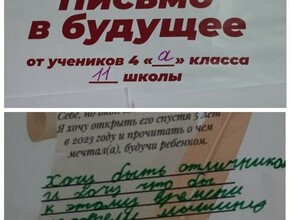 Письмо
в будущее
от учеников 4 «а» класса
11 школы
Я хочу открыть его спустя 5 лет
в 2023 году и прочитать о чём
мечтал(а), будучи ребенком.
Хочу быть отличником
и хочу что бы
к этому времени
машина